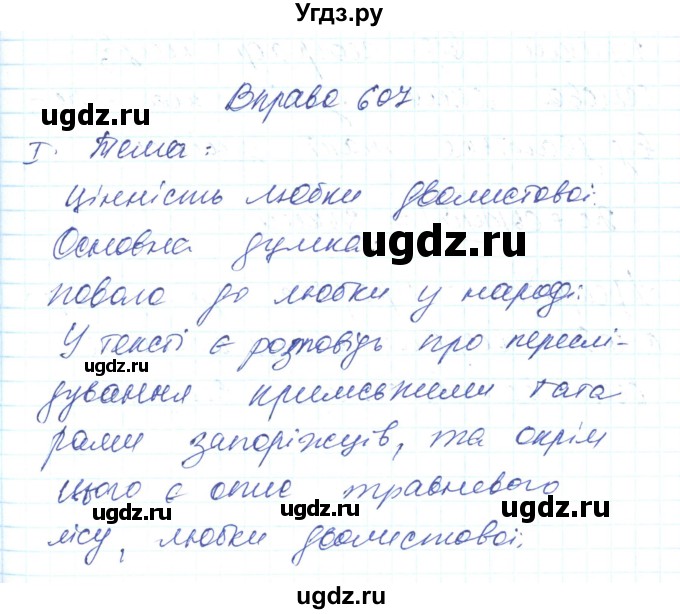 Угдз.ру
Вправа 607
ugdz.ru
I. Тема:
цінність любки дволистової.
Основна думка
ugdz.ru
повага до любки у народі.
У тексті є розповідь про переслі-
ugdz.ru
дування кримськими тата
рами запоріжців, та окрім
цього є опис травневого
ugdz.ru ugdz.ru
лісу, любки дволистової.
ugdz.ru